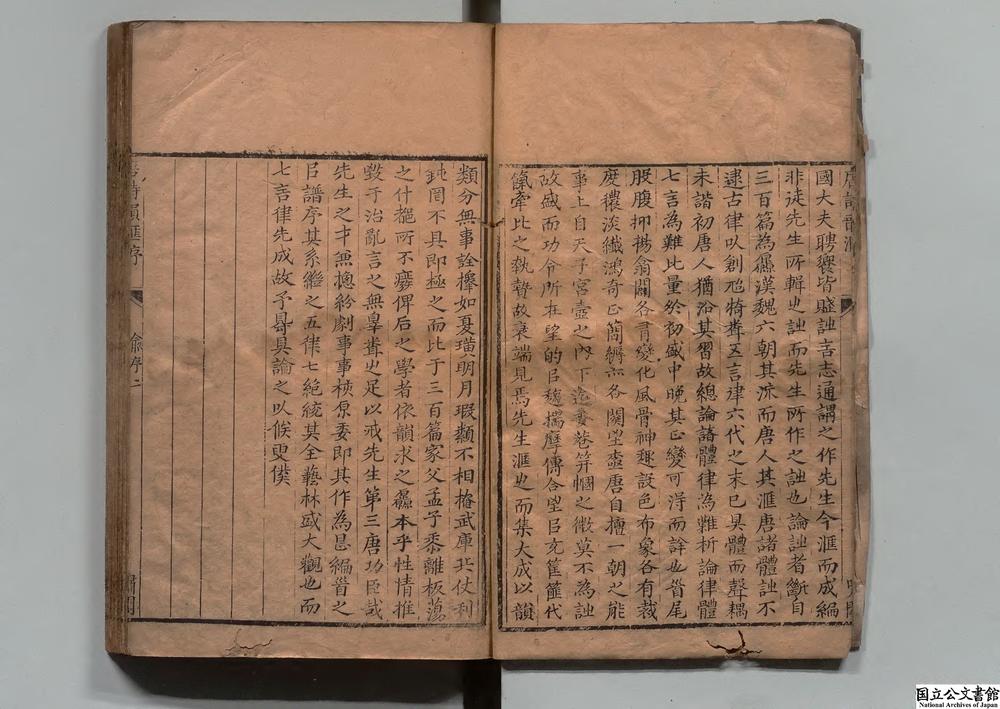 國大夫聘饗皆賦詩言志通謂之作先生今滙而成編
非徒先生所輯也詩而先生所作之詩也論詩者斷自
三百篇為鼻漢魏六朝其流而唐人其滙唐諸體詩不
逮古律以創彪犄聳五言律六代之末已具體而聲耦
未諧初唐人猶沿其習故總論諸體律為難析論律體
七言為難比量於初盛中晚其正變可淂而詳也首尾
股腹抑揚翕闢各有變化風骨神趣設色布象各有裁
度穠淡纖鴻奇正簡縟亦各闋望盛唐自擅一朝之能
事上自天子宮壼之內下迨委巷笄幗之微莫不為詩
故盛而功令所在望的㠯趨揣摩傅合望㠯充筐篚代
餼牽比之執贄故衰端見焉先生滙也而集大成以韻
類分無事詮擇如夏璜明月瑕纇不相揜武庫兵仗利
鈍罔不具即極之而比于三百篇家父孟子黍離板蕩
之什摧所不廢俾后之學者依韻求之鼻本乎性情推
斅于治亂言之無辠聳也足以戒先生第三唐功臣哉
先生之才無摠紛劇事事核原委即其作為是編首之
㠯譜序其系繼之五律七絕統其全藝林或大觀也而
七言律先成故予曷具論之以俟更僕
唐詩韻滙序
俞序二